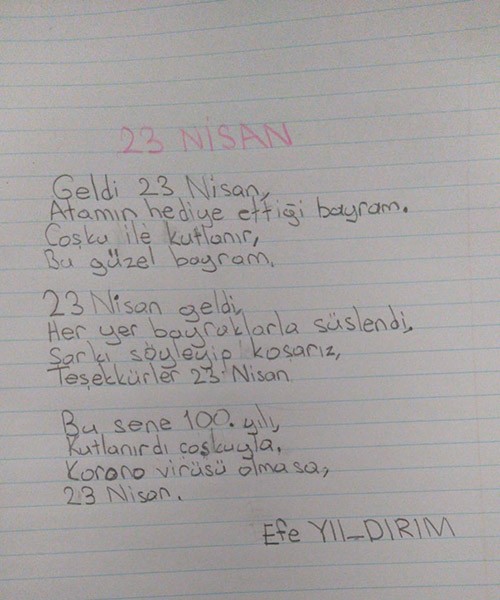 23 NİSAN
Geldi 23 Nisan,
Atamın hediye ettiği bayram.
Coşku ile kutlanır,
Bu güzel bayram.
23 Nisan geldi,
Her yer bayraklarla süslendi.
Şarkı söyleyip koşarız,
Teşekkürler 23 Nisan
Bu sene 100. yılı,
Kutlanırdı coşkuyla.
Korono virüsü olmasa,
23 Nisan.
Efe YILDIRIM